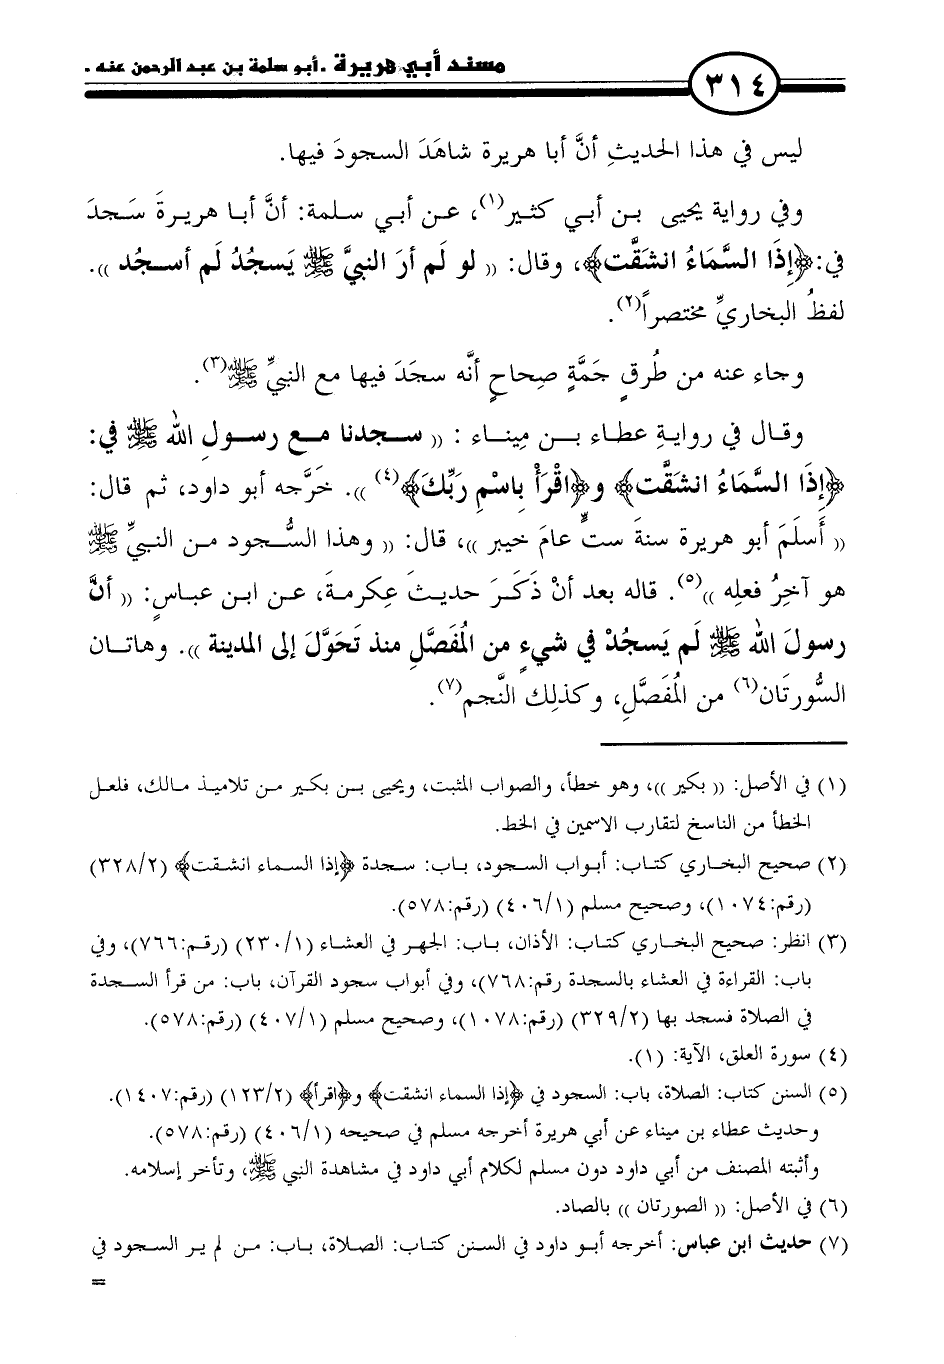 ٣١٤ مسند أبي هريرة . أبو سلمة بن عبد الرحمن عنه .
ليس في هذا الحديثِ أنَّ أبا هريرة شاهَدَ السجودَ فيها.
وفي رواية يحيى بن أبي كثير(١)، عن أبي سلمة: أنَّ أبا هريرةَ سَجدَ
في:﴿إِذَا السَّمَاءُ انشَقَّت﴾، وقال: (( لو لَم أرَ النبيَّ ﷺ يَسجُدُ لَم أسجُد )).
لفظُ البخاريِّ مختصراً(٢).
وجاء عنه من طُرقٍ جَمَّةٍ صِحاحٍ أنَّه سجَدَ فيها مع النبيِّ ﷺ(٣).
وقال في روايةِ عطاء بن مِيناء : (( سجدنا مع رسولِ الله ﷺ في:
﴿إِذَا السَّمَاءُ انشَقَّت﴾ و﴿اقْرَأْ بِاسْمِ رَبِّكَ﴾(٤) )). خَرَّجه أبو داود، ثم قال:
(( أَسلَمَ أبو هريرة سنةَ ستٍّ عامَ خيبر ))، قال: (( وهذا السُّجود من النبيِّ ﷺ
هو آخرُ فعلِه ))(٥). قاله بعد أنْ ذَكَرَ حديثَ عِكرمةَ، عن ابن عباسٍ: (( أنَّ
رسولَ الله ﷺ لَم يَسجُدْ في شيءٍ من المُفَصَّلِ منذ تَحَوَّلَ إلى المدينة )). وهاتان
السُّورتَان(٦) من المُفَصَّلِ، وكذلك النَّجم(٧).
(١) في الأصل: (( بكير ))، وهو خطأ، والصواب المثبت، ويحيى بن بكير من تلاميذ مالك، فلعل
الخطأ من الناسخ لتقارب الاسمين في الخط.
(٢) صحيح البخاري كتاب: أبواب السجود، باب: سجدة ﴿إذا السماء انشقت﴾ (٣٢٨/٢)
(رقم:١٠٧٤)، وصحيح مسلم (٤٠٦/١) (رقم:٥٧٨).
(٣) انظر: صحيح البخاري كتاب: الأذان، باب: الجهر في العشاء (٢٣٠/١) (رقم:٧٦٦)، وفي
باب: القراءة في العشاء بالسجدة رقم:٧٦٨)، وفي أبواب سجود القرآن، باب: من قرأ السجدة
في الصلاة فسجد بها (٣٢٩/٢) (رقم:١٠٧٨)، وصحيح مسلم (٤٠٧/١) (رقم:٥٧٨).
(٤) سورة العلق، الآية: (١).
(٥) السنن كتاب: الصلاة، باب: السجود في ﴿إذا السماء انشقت﴾ و﴿اقرأ﴾ (١٢٣/٢) (رقم:١٤٠٧).
وحديث عطاء بن ميناء عن أبي هريرة أخرجه مسلم في صحيحه (٤٠٦/١) (رقم:٥٧٨).
وأثبته المصنف من أبي داود دون مسلم لكلام أبي داود في مشاهدة النبي ﷺ، وتأخر إسلامه.
(٦) في الأصل: (( الصورتان )) بالصاد.
(٧) حديث ابن عباس: أخرجه أبو داود في السنن كتاب: الصلاة، باب: من لم ير السجود في
=